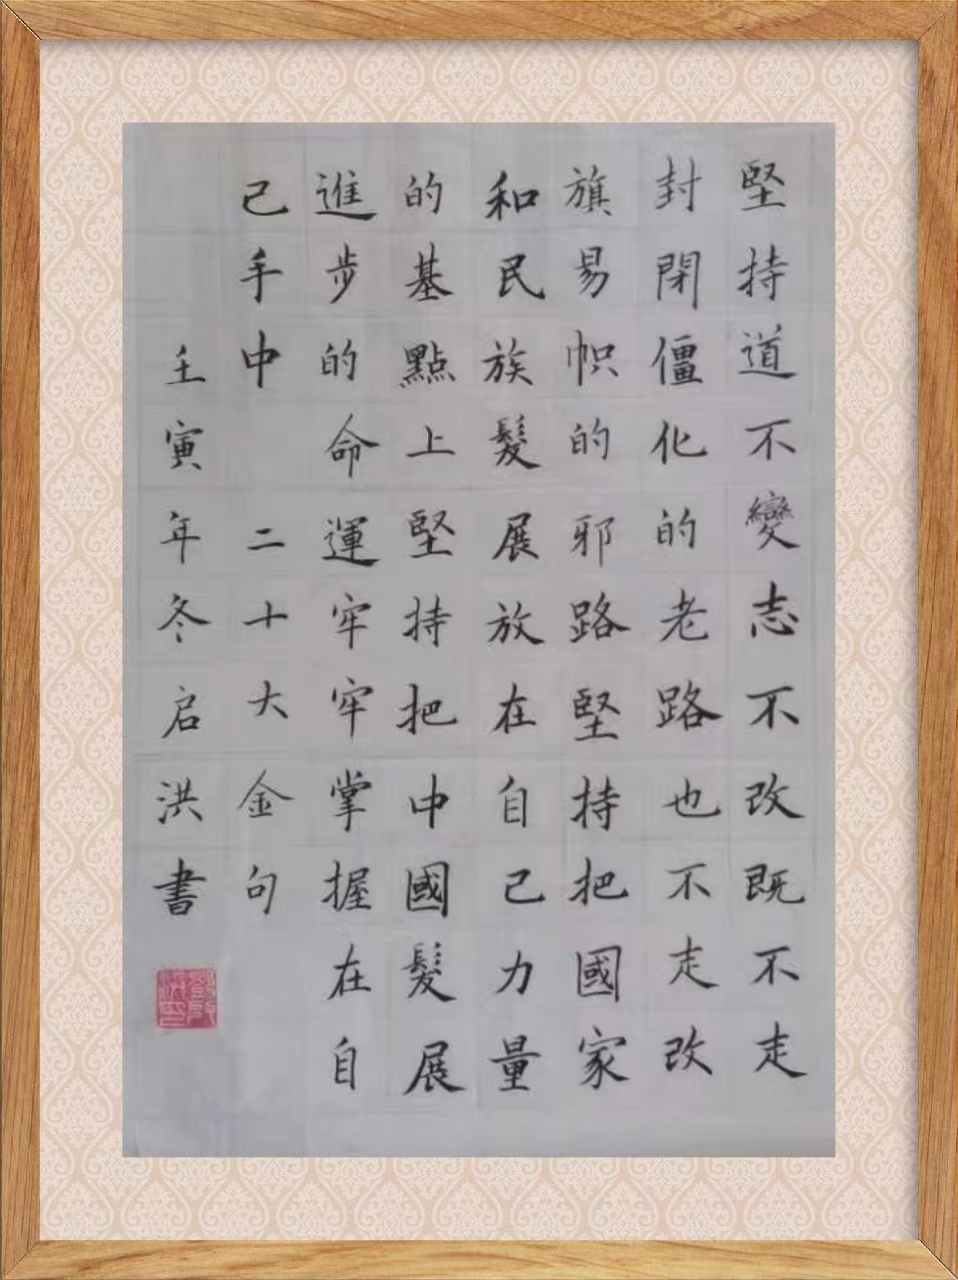 堅持道不變志不改既不走
封閉僵化的老路也不走改
旗易帜的邪路堅持把國家
和民族髮展放在自己力量
的基點上堅持把中國髮展
進步的命運牢牢掌握在自
己手中 二十大金句
壬寅年冬启洪書